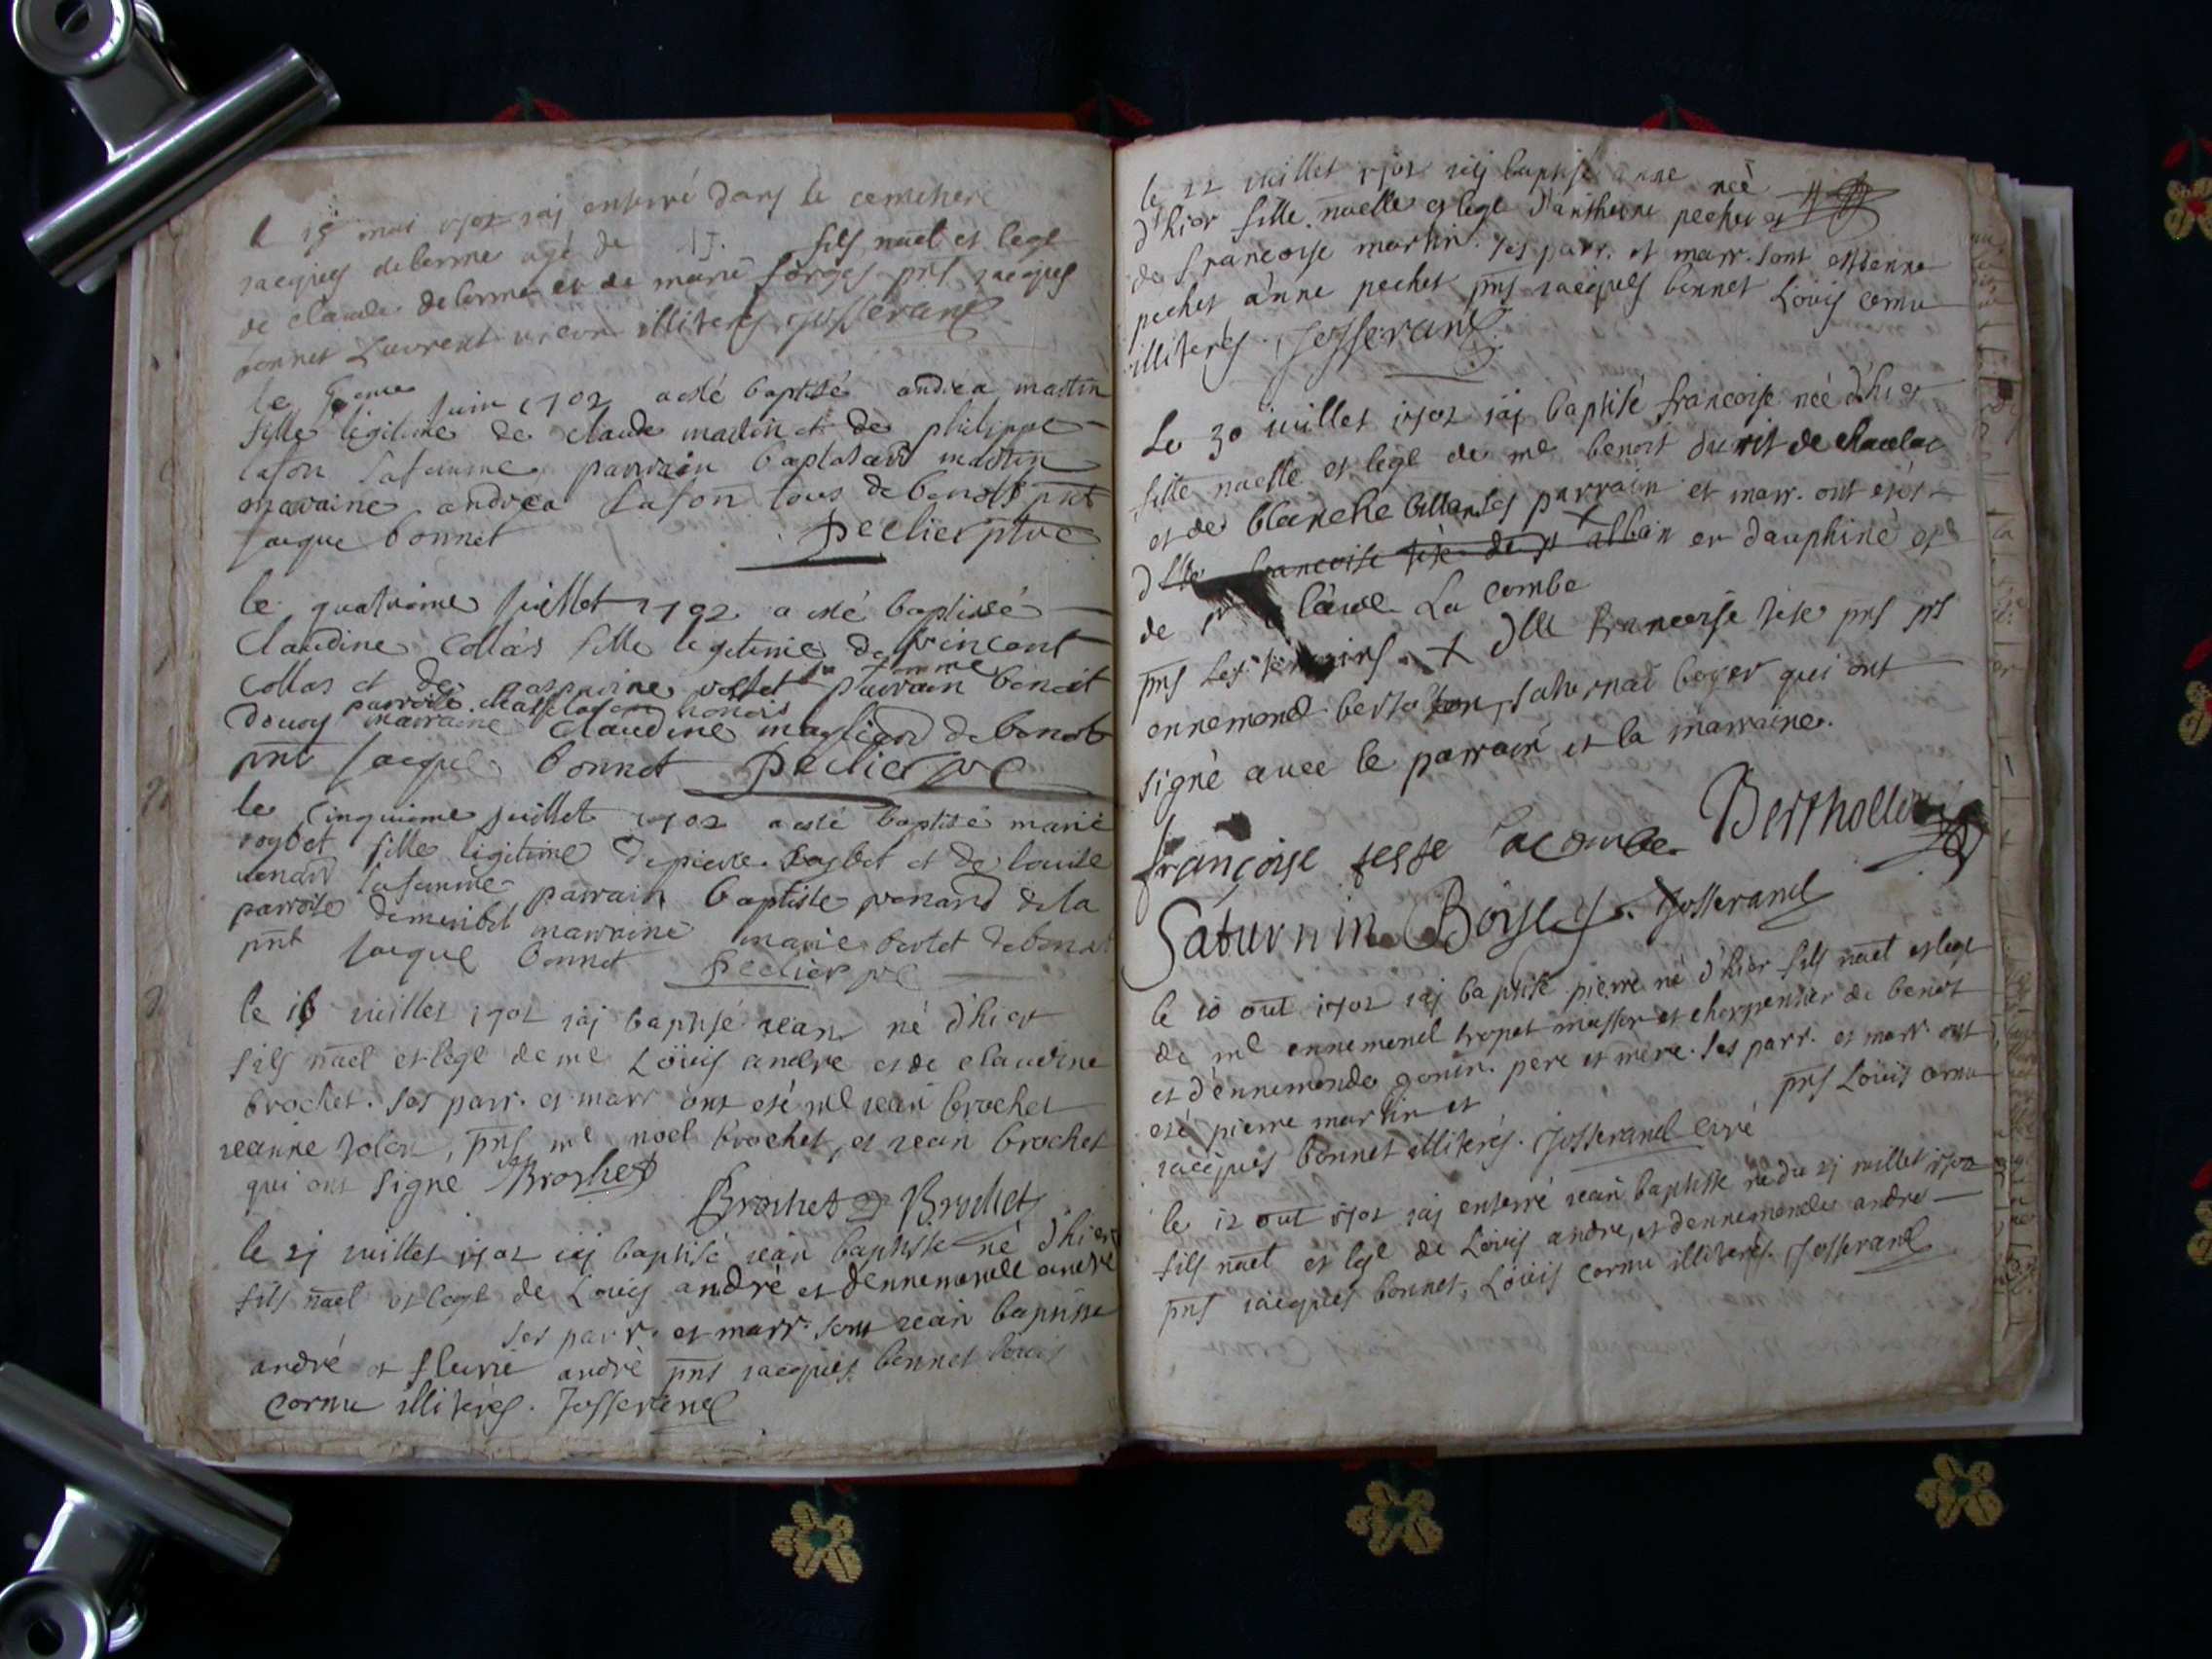 le 18 mai 1702 iaj enterré dans le cemethere
iacques delorme agé de 15. fils nael et legt
de claude delorme et de marie forges pnts iacques
bonnet Laurent illiterés Josserand
le juin 1702 a esté baptisé andrea martin
fille legitime de claude martin et de philippe
lafon sa femme, parrain martin
maraine andrea Lafon tous de benost pnt
Jaque bonnet peclier ptre
le quatrieme juillet 1702 a esté baptisée
Claudine Collas fille legitime de vincent
Collas et de sa femme parrain benoit
parroise
douoy marraine Claudine magliard de benost
pnt Jacque bonnet peclier ptre
le cinquieme juillet 1702 a esté baptisé marie
roybet fille legitime de pierre Roybet et de louise
venard sa femme parrain baptiste venard de la
parroise demeribel marraine marie bertet de benost
pnt Jacque bonnet peclier ptre
le 16 iuillet 1702 iaj baptisé iean né d'hier
fils nael et legt de me Loüis andre et de claudine
brochet. Ses parr. et marr ont esté me iean brochet
ieanne , pns me noel brochet, et iean brochet
qui ont signé Brochet
Brochet Brochet
le 21 iuillet 1702 iaj baptisé iean baptiste né d'hier
fils nael et legt de Louis andré et d'ennemonde andre
ses parr. et marr. sont iean baptiste
andré et fleurie andré pns iacques bonnet louis
cornu illiterés. Josserand
le 22 iuillet 1702 iaj baptisé anne née
d'hier fille naelle et legt d'antheine pechet et
de francoise martin. ses parr. et marr. sont estienne
pechet anne pechet pns iacques bonnet Loüis cornu
illiterés. Josserand
Le 30 iuillet 1702 iaj baptisé francoise née d'hier
fille naelle et legt de me benoit
et de blanche Ses parrain et marr. ont esté
dlle francoise tese de st alban en dauphiné et
de La combe
pns Les temoins. X dlle francoise tese pns
ennemond bertolon, saturnin boyer qui ont
signé auec le parrain et la marraine.
françoise tesse lacombe Berthollon
Saturnin Boyer. Josserand
le 10 out 1702 iaj baptisé pierre né d'hier fils nael et legt
de me ennemond tropet masson et charpentier de benost
et d'ennemonde gonin. pere et mere. Ses parr. et marr. ont
esté pierre martin et pns Louis cornu
iacques bonnet illiterés. Josserand curé
le 12 out 1702 iaj enterré iean baptiste né du 21 iuillet 1702
fils nael et legt de Louis andre, et d'ennemonde andre
pns iacques bonnet, Loüis cornu illiterés. Josserand